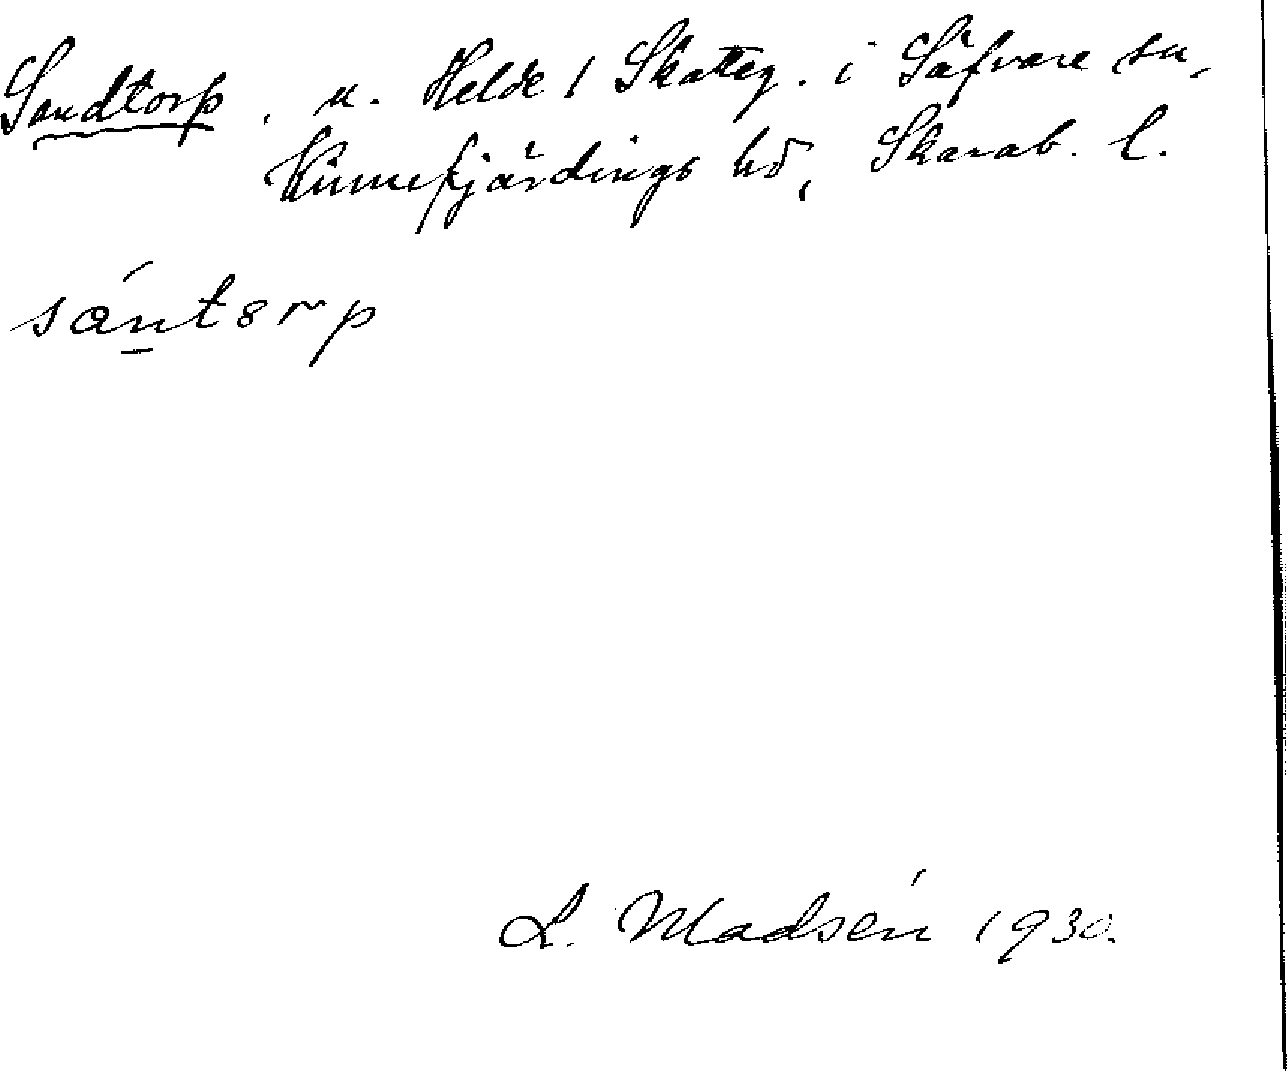 Sandtorp, u. Helde 1 Skatteg. i Säfvare sn,
Kinnefjärdings hd, Skarab. l.
sántorp
L. Madsén 1930.